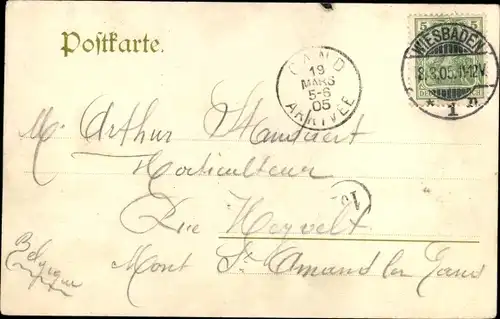 Postkarte.
5 5
WIESBADEN
8.3.05.11-12V.
* 1 n
GAND
19
MARS
5-6
05
ARRIVÉE
Mr Arthur
Horticulteur
Rue Heyvelt
Mont St. Amand lez Gand
Belgique